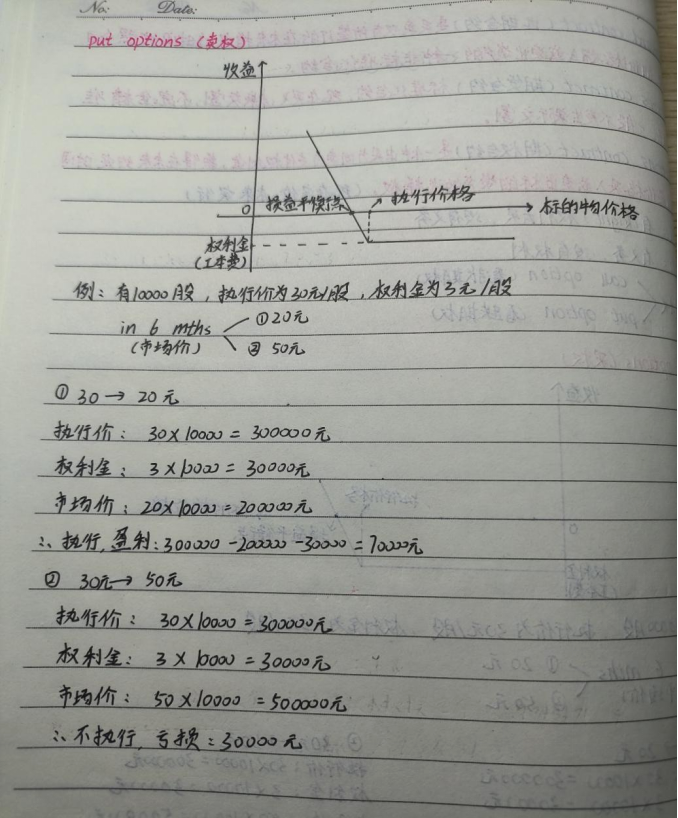 No: Date:
put options (卖权)
收益
0 损益平衡点 执行价格 标的物价格
权利金
(工本费)
例：有10000股，执行价为30元/股，权利金为3元/股
in 6 mths ①20元
(市场价) ② 50元
① 30 → 20元
执行价： 30×10000 = 300000元
权利金： 3×10000 = 30000元
市场价：20×10000 = 200000元
∴ 执行，盈利：300000 -200000 -30000 = 70000元
② 30元 → 50元
执行价： 30×10000 = 300000元
权利金： 3×10000 = 30000元
市场价： 50×10000 = 500000元
∴ 不执行，亏损：30000元